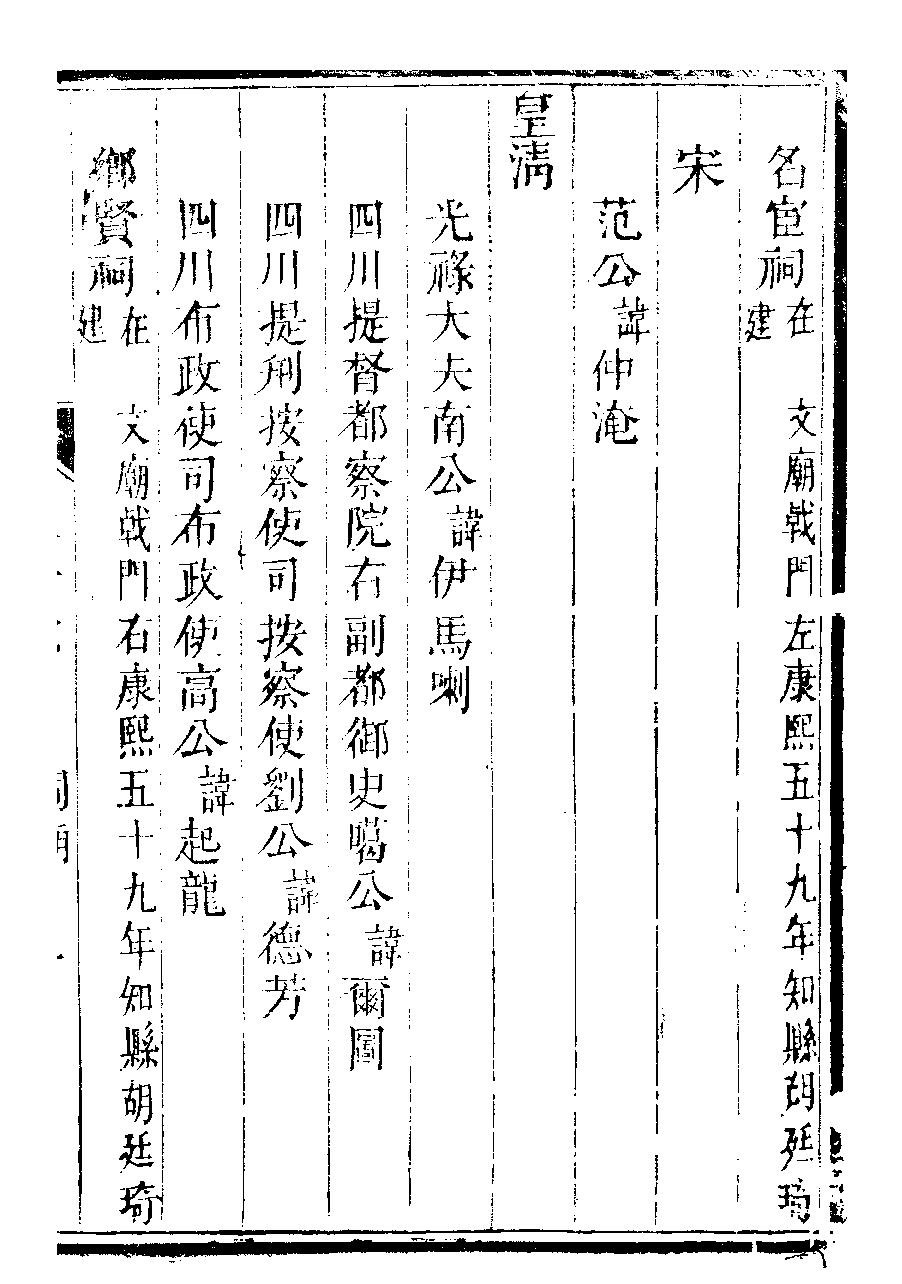 名宦祠在　文廟戟門左康熙五十九年知縣胡廷琦建
宋
范公諱仲淹
皇清
光祿大夫南公諱伊馬喇
四川提督都察院右副都御史噶公諱爾圖
四川提刑按察使司按察使劉公諱德芳
四川布政使司布政使高公諱起龍
鄉賢祠在　文廟戟門右康熙五十九年知縣胡廷琦建